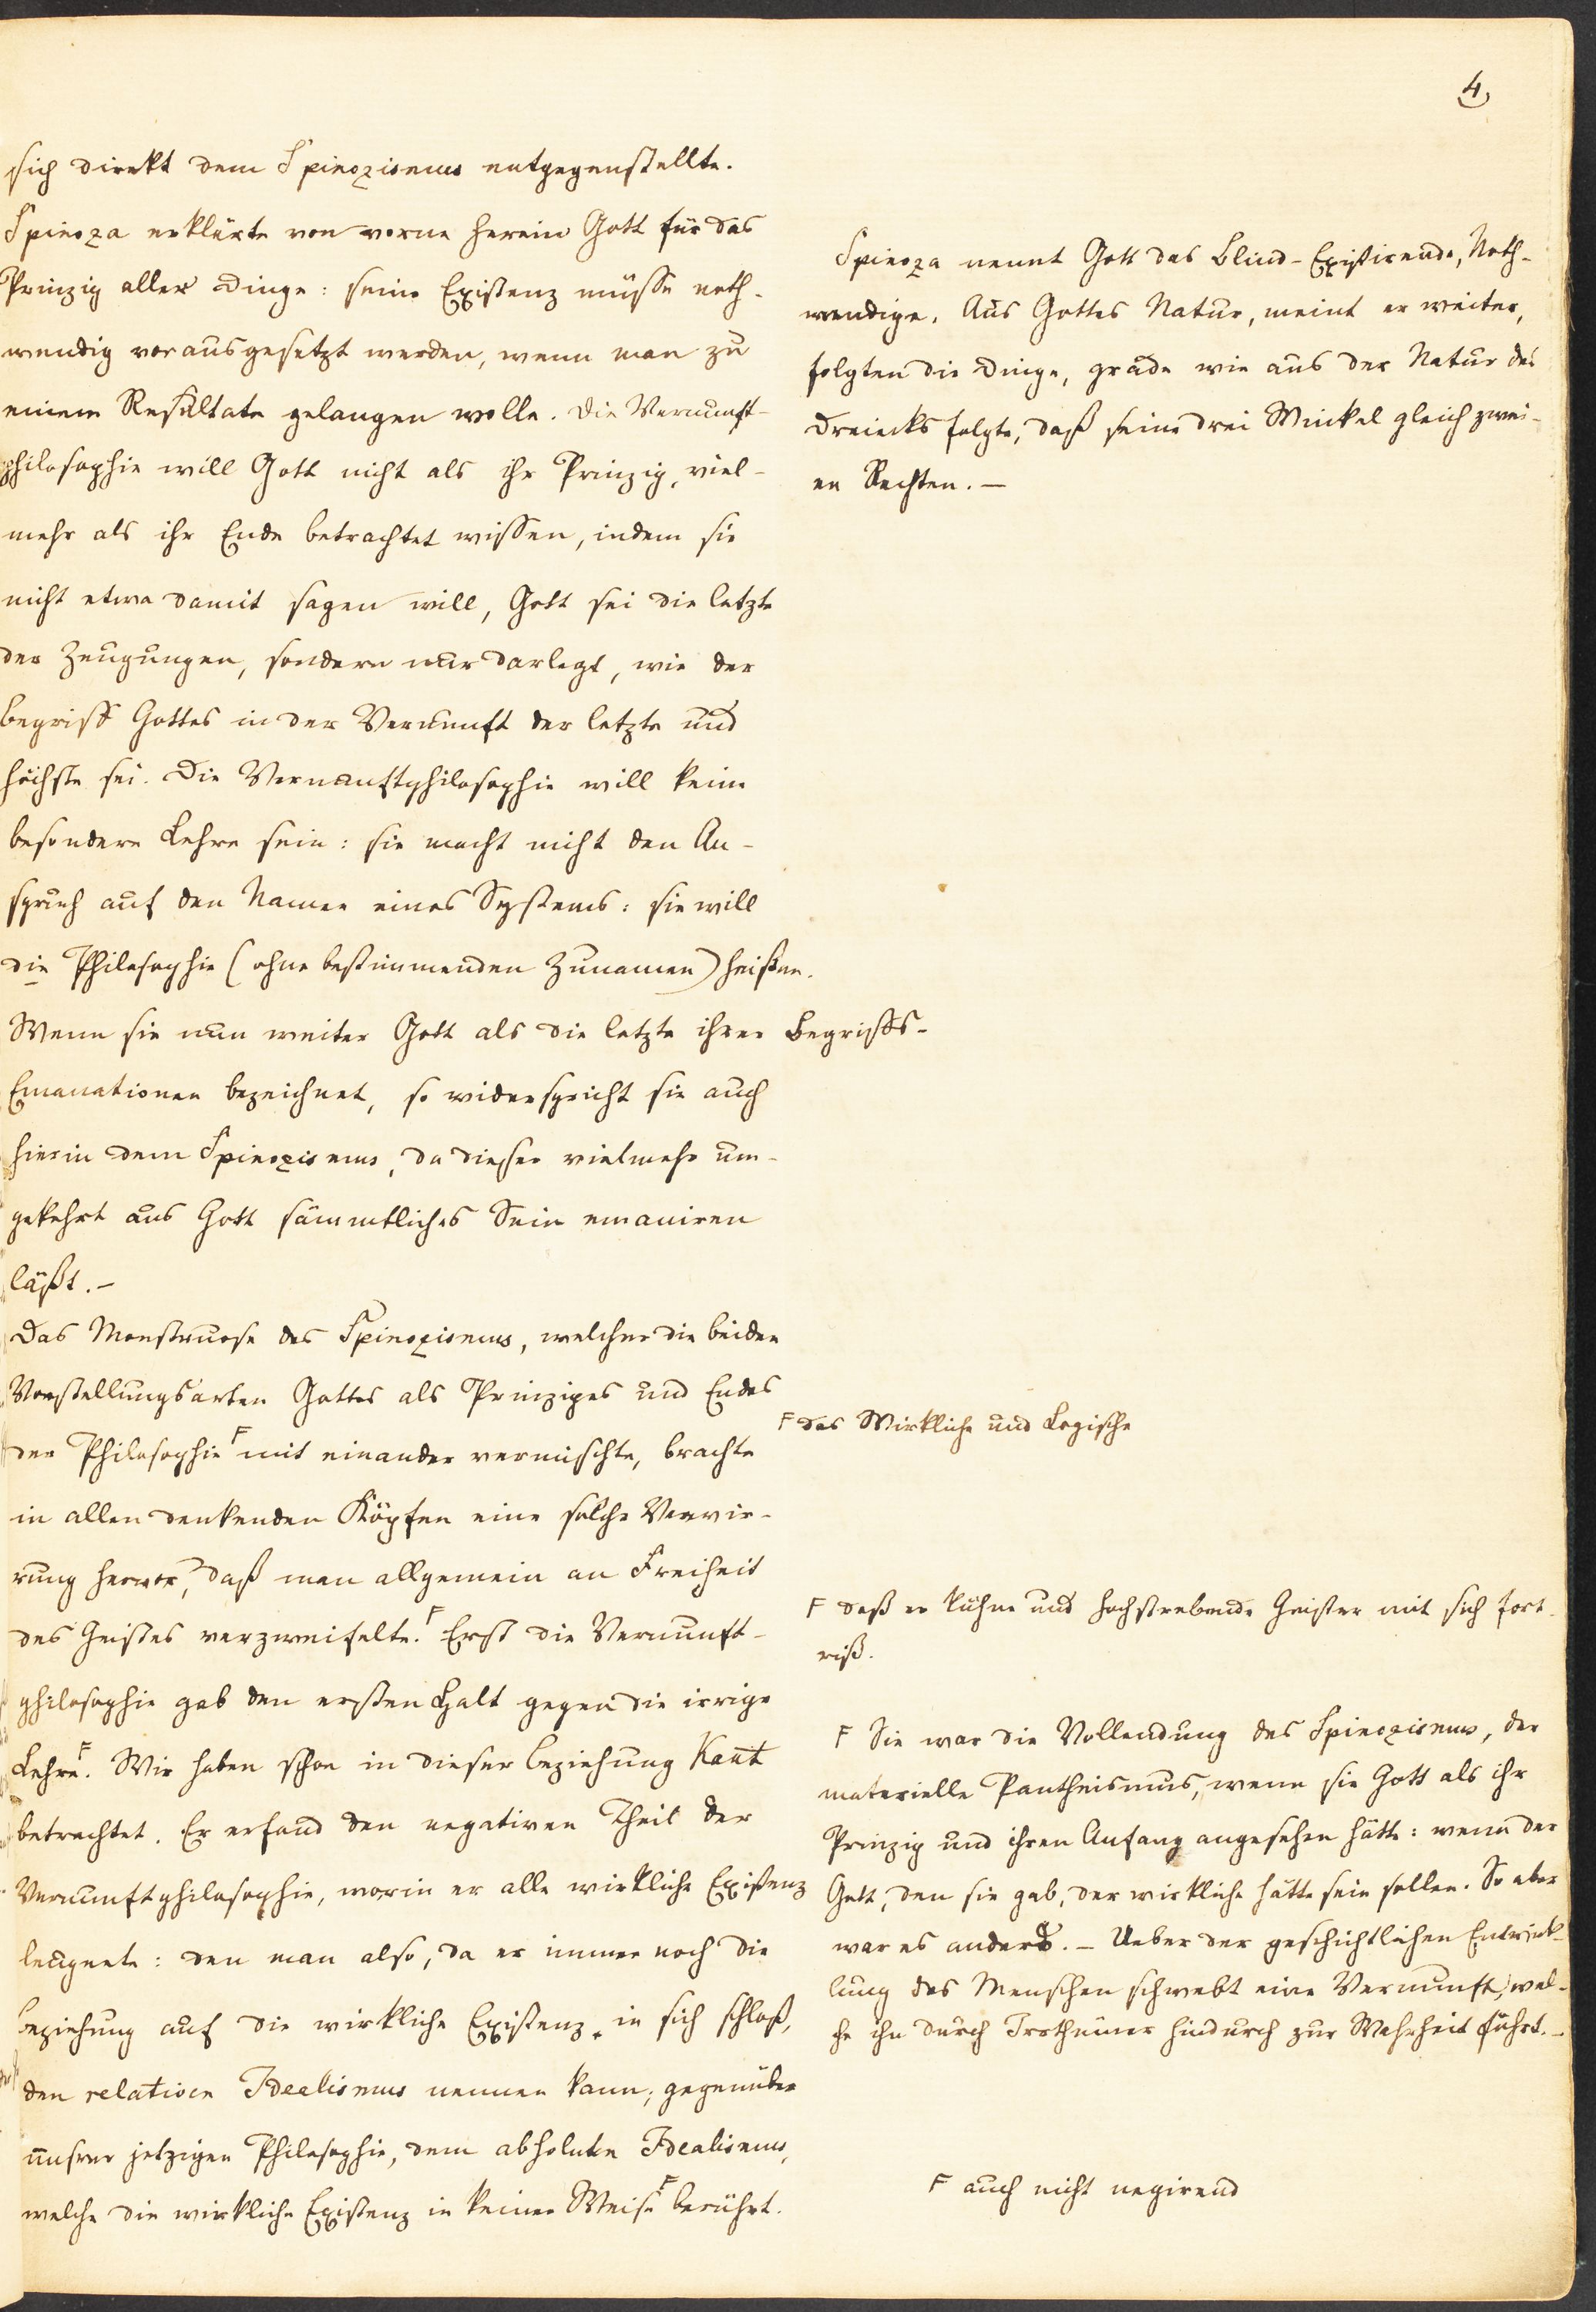 4,
sich direkt dem Spinozismus entgegenstellte.
Spinoza erklärte von vorne herein Gott für das
Prinzip aller Dinge: seine Existenz müsse noth-
wendig vorausgesetzt werden, wenn man zu
einem Resultate gelangen wolle. Die Vernunft-
philosophie will Gott nicht als ihr Prinzip, viel-
mehr als ihr Ende betrachtet wissen, indem sie
nicht etwa damit sagen will, Gott sei die letzte
der Zeugungen, sondern nur darlegt, wie der
Begriff Gottes in der Vernunft der letzte und
höchste sei. Die Vernunftphilosophie will keine
besondere Lehre sein: sie macht nicht den An-
spruch auf den Namen eines Systems: sie will
die Philosophie (ohne bestimmenden Zunamen) heißen.
Wenn sie nun weiter Gott als die letzte ihrer Begriffs-
Emanationen bezeichnet, so widerspricht sie auch
hierin dem Spinozismus, da dieser vielmehr um-
gekehrt aus Gott sämmtliches Sein emaniren
läßt. –
Das Monstruose des Spinozismus, welcher die beiden
Vorstellungsarten Gottes als Prinzipes und Endes
der Philosophie F mit einander vermischte, brachte
in allen denkenden Köpfen eine solche Verwir-
rung hervor, daß man allgemein an Freiheit
des Geistes verzweifelte. F Erst die Vernunft-
philosophie gab den ersten Halt gegen die irrige
Lehre. F Wir haben schon in dieser Beziehung Kant
betrachtet. Er erfand den negativen Theil der
Vernunftphilosophie, worin er alle wirkliche Existenz
leugnete: den man also, da er immer noch die
Beziehung auf die wirkliche Existenz in sich schloß,
den relativen Idealismus nennen kann; gegenüber
unsrer jetzigen Philosophie, dem absoluten Idealismus,
welche die wirkliche Existenz in keiner Weise F berührt.
Spinoza nennt Gott das Blind-Existirende, Noth-
wendige. Aus Gottes Natur, meint er weiter,
folgten die Dinge, grade wie aus der Natur des
Dreiecks folgte, daß seine drei Winkel gleich zwei-
en Rechten. –
F das Wirkliche und Logische
F daß er kühne und hochstrebende Geister mit sich fort-
riß.
F Sie war die Vollendung des Spinozismus, der
materielle Pantheismus, wenn sie Gott als ihr
Prinzip und ihren Anfang angesehen hätte: wenn der
Gott, den sie gab, der wirkliche hätte sein sollen. So aber
war es anders. – Ueber der geschichtlichen Entwick-
lung des Menschen schwebt eine Vernunft, wel-
che ihn durch Irrthümer hindurch zur Wahrheit führt. –
F auch nicht negirend